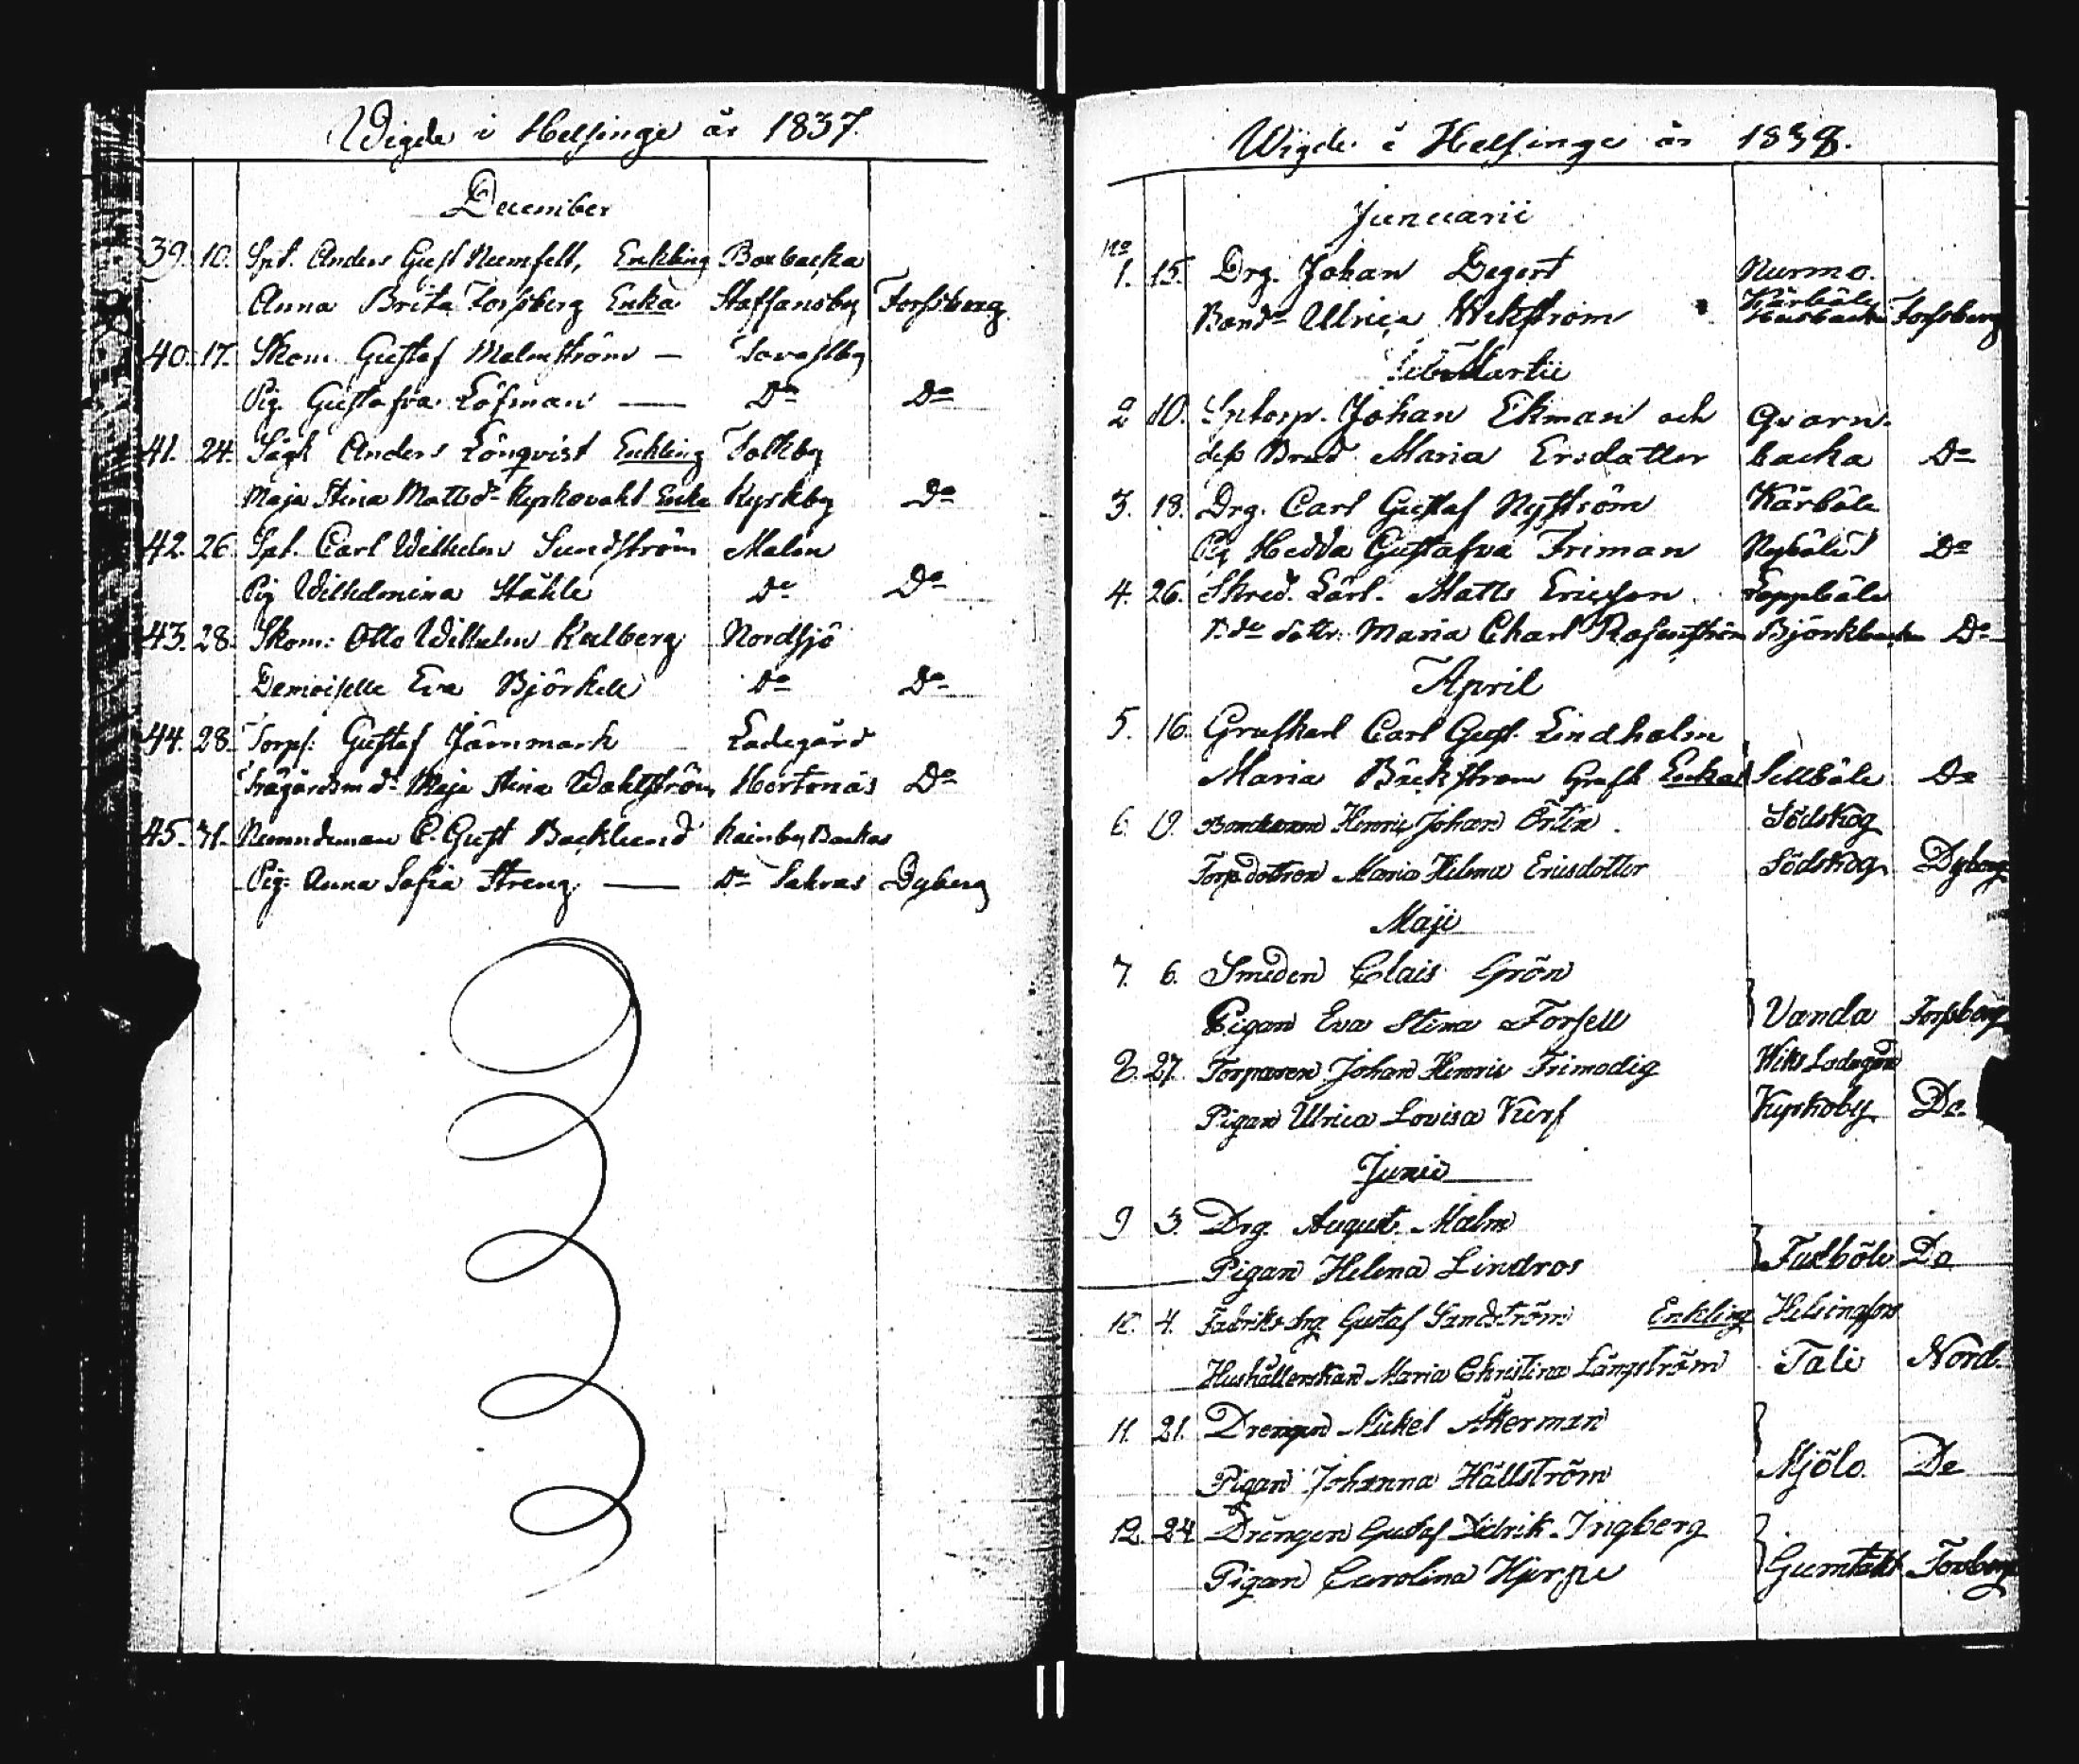 Wigde i Helsinge år 1837.
December
39. 10. Spt. Anders Gust Neumfelt, Enkling Boxbacka
Anna Brita Forssberg Enka Staffansby Forssberg
40. 17. Skom. Gustaf Malmström — Tavastby
Pig. Gustafva Löfman — Do Do
41. 24. Sågk Anders Lönqvist Enkling Tolkby
Maja Stina Mattsdr Kyrkovakt Enka Kyrkby Do
42. 26. Spt. Carl Wilhelm Sundström Malm
Pig Wilhelmina Ståhle Do Do
43. 28. Skom: Otto Wilhelm Kalberg Nordsjö
Demoiselle Eva Björkell Do Do
44. 28. Torp: Gustaf Järnmark Ladegård
Maja Stina Wahlström Hertonäs Do
45. 31. Nemndeman C. Gust Backlund Backas
Pig: Anna Sofia Streng — Do Sakras Dyberg
Wigde i Helsinge år 1838.
Januarii
No
1. 15. Drg. Johan Degert Nurmo.
Bondr Ulrica Wekström Kårböle Forssberg
Martii
2 10. Sptorp. Johan Ekman och Qvarn-
dess Brud Maria Ersdatter backa Do
3. 18. Drg. Carl Gustaf Nyström Kårböle
Pig Hedda Gustafva Friman Nyböle Do
4. 26. Skred. Lärl. Matts Ericsson Toppböle
dottr: Maria Charl Rosenström Björkbacka Do
April
5. 16. Grufkarl Carl Gust. Lindholm
Maria Bäckström Grufk Enka Sillböle Do
6. 19. Bondesonen Henric Johan Örtén. Södskog
Torp.dottren Maria Helena Ericsdotter Södskog Dyberg
Maji
7. 6. Smeden Clais Grön
Pigan Eva Stina Forsell } Vanda Forssberg
8. 27. Torparen Johan Henric Frimodig Wiks Ladegård
Pigan Ulrica Lovisa Kurf Kyrkoby Do.
Junii
9 3. Drg. August Malm
Pigan Helena Lindros } Fastböle Do
10. 4. Fabriks drg Gustaf Sandström Enkling Helsingfors
Hushållerskan Maria Christina Långström Tali Nord.
11. 21. Drengen Mickel Åkerman
Pigan Johanna Hällström } Mjölo. Do
12. 24 Drengen Gustaf Didrik Ingberg
Pigan Carolina Hjerpe } Gumtäkt Forsberg